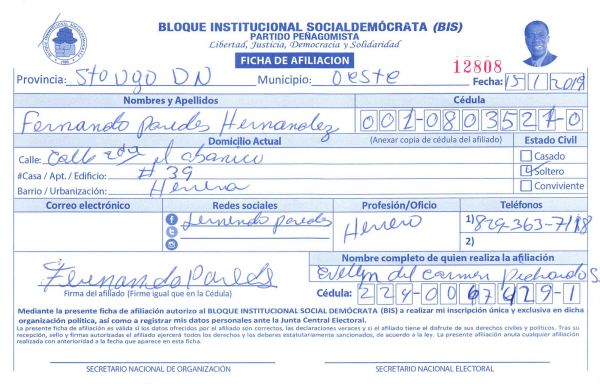 BLOQUE INSTITUCIONAL SOCIALDEMÓCRATA (BIS)
PARTIDO PEÑAGOMISTA
Libertad, Justicia, Democracia y Solidaridad
FICHA DE AFILIACION
12808
Provincia: Sto Dgo DN Municipio: oeste Fecha: 15/1/2019
Nombres y Apellidos Cédula
Fernando Paredes Hernandez 001-0803521-0
Domicilio Actual (Anexar copia de cédula del afiliado) Estado Civil
Calle: Calle 2da el abanico Casado
#Casa / Apt. / Edificio: #39 Soltero
Barrio / Urbanización: Herrera Conviviente
Correo electrónico Redes sociales Profesión/Oficio Teléfonos
fernando paredes Herrero 1) 829-363-7118
2)
Nombre completo de quien realiza la afiliación
Fernando Paredes Evelyn del Carmen Pichardo S.
Firma del afiliado (Firme igual que en la Cédula) Cédula: 224-0067429-1
Mediante la presente ficha de afiliación autorizo al BLOQUE INSTITUCIONAL SOCIAL DEMÓCRATA (BIS) a realizar mi inscripción única y exclusiva en dicha
organización política, así como a registrar mis datos personales ante la Junta Central Electoral.
La presente ficha de afiliación es válida si los datos ofrecidos por el afiliado son correctos, las declaraciones veraces y si el afiliado tiene el disfrute de sus derechos civiles y políticos. Tras su
recepción, sello y firmas autorizadas el afiliado ejercerá todos los derechos y los deberes estatutariamente sancionados, de acuerdo a la ley. La presente afiliación anula cualquier afiliación
realizada con anterioridad a la fecha que aparece en esta ficha.
SECRETARIO NACIONAL DE ORGANIZACIÓN SECRETARIO NACIONAL ELECTORAL